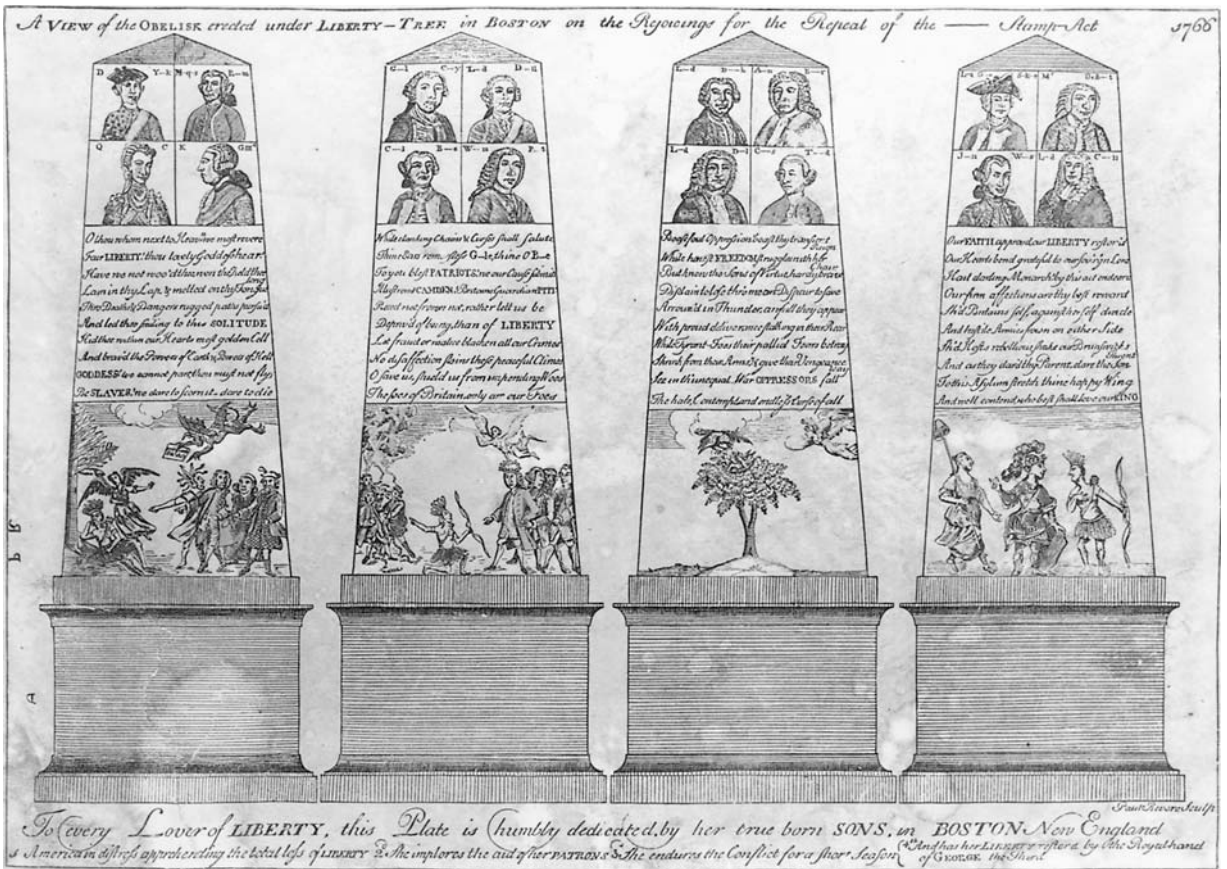 A VIEW of the OBELISK erected under LIBERTY-TREE in BOSTON on the Rejoicings for the Repeal of the —— Stamp-Act 1766
D Y-k M-q-s R-m
Q C K Gm
O thou whom next to Heav'n we most revere
Fair LIBERTY! thou lovely Goddess hear!
Have we not woo'd thee, won thee, held thee long
Lain in thy Lap, & melted on thy Tongue
Thro Deaths & Dangers rugged paths pursu'd
And led thee smiling to this SOLITUDE
Hid thee within our Hearts most golden Cell
And brav'd the Powers of Earth & Powers of Hell
GODDESS! we cannot part, thou must not fly;
Be SLAVES! we dare to scorn it_ dare to die
G-l C-y L-d D-n
C-l B-e W-m P-t
While clanking Chains & Curses shall salute
Thine Ears remorsless G-le, thine O B-e
To you blest PATRIOTS, we our Cause submit
Illustrous CAMDEN, Britains Guardian, PITT
Recede not, frown not, rather let us be
Depriv'd of being, than of LIBERTY
Let fraud or malice blacken all our Crimes
No disaffection stains these peaceful Climes
O save us, shield us from impending Woes
The foes of Britain, only are our Foes
L-d
L-d D-l C-s T-d
Boast foul Oppression, boast thy transient Reign
While honest FREEDOM struggles with her Chain
But know the Sons of Virtue, hardy, brave
Disdain to lose thro' mean Dispair to save
Arrouz'd in Thunder, awfull they appear
With proud deliverance stalking in their Rear
While Tyrant-Foes their pallid Fears betray
Shrink from their Arms, & give their Vengeance way
See in th'unequal War OPPRESSORS fall
The hate, contempt, and endless Curse of all
J-n W-s L-d C-n
Our FAITH approv'd, our LIBERTY restor'd
Our Hearts bend grateful to our sov'r'gn Lord
Hail darling Monarch! by this act endear'd
Our firm affections are thy best reward
Sh'd Britains self, against herself divide
And hostile Armies frown on either Side
Sh'd Hosts rebellious, shake our Brunswick's Throne
And as they dar'd thy Parent, dare the Son
To this Asylum stretch thine happy Wing
And we'll contend, who best shall love our KING
Paul Revere Sculp
To every Lover of LIBERTY, this Plate is humbly dedicated, by her true born SONS, in BOSTON New England
America in distress apprehending the total loss of LIBERTY 2d She implores the aid of her PATRONS 3d She endures the Conflict for a short Season 4th And has her LIBERTY restord by the Royal hand
of GEORGE the Third